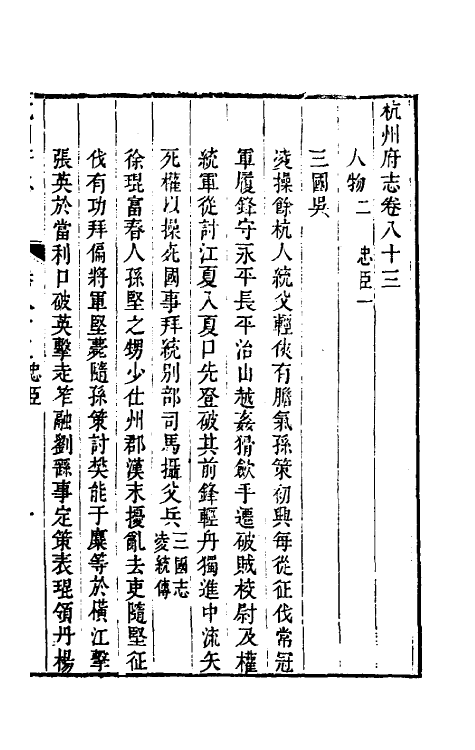 杭州府志卷八十三
人物二　忠臣一
三國吳
凌操餘杭人統父輕俠有膽氣孫策初興每從征伐常冠
軍履鋒守永平長平治山越姦猾斂手遷破賊校尉及權
統軍從討江夏入夏口先登破其前鋒輕舟獨進中流矢
死權以操死國事拜統別部司馬攝父兵三國志凌統傳
徐琨富春人孫堅之甥少仕州郡漢末擾亂去吏隨堅征
伐有功拜偏將軍堅薨隨孫策討樊能于麋等於橫江擊
張英於當利口破英擊走笮融劉繇事定策表琨領丹楊
忠臣
一